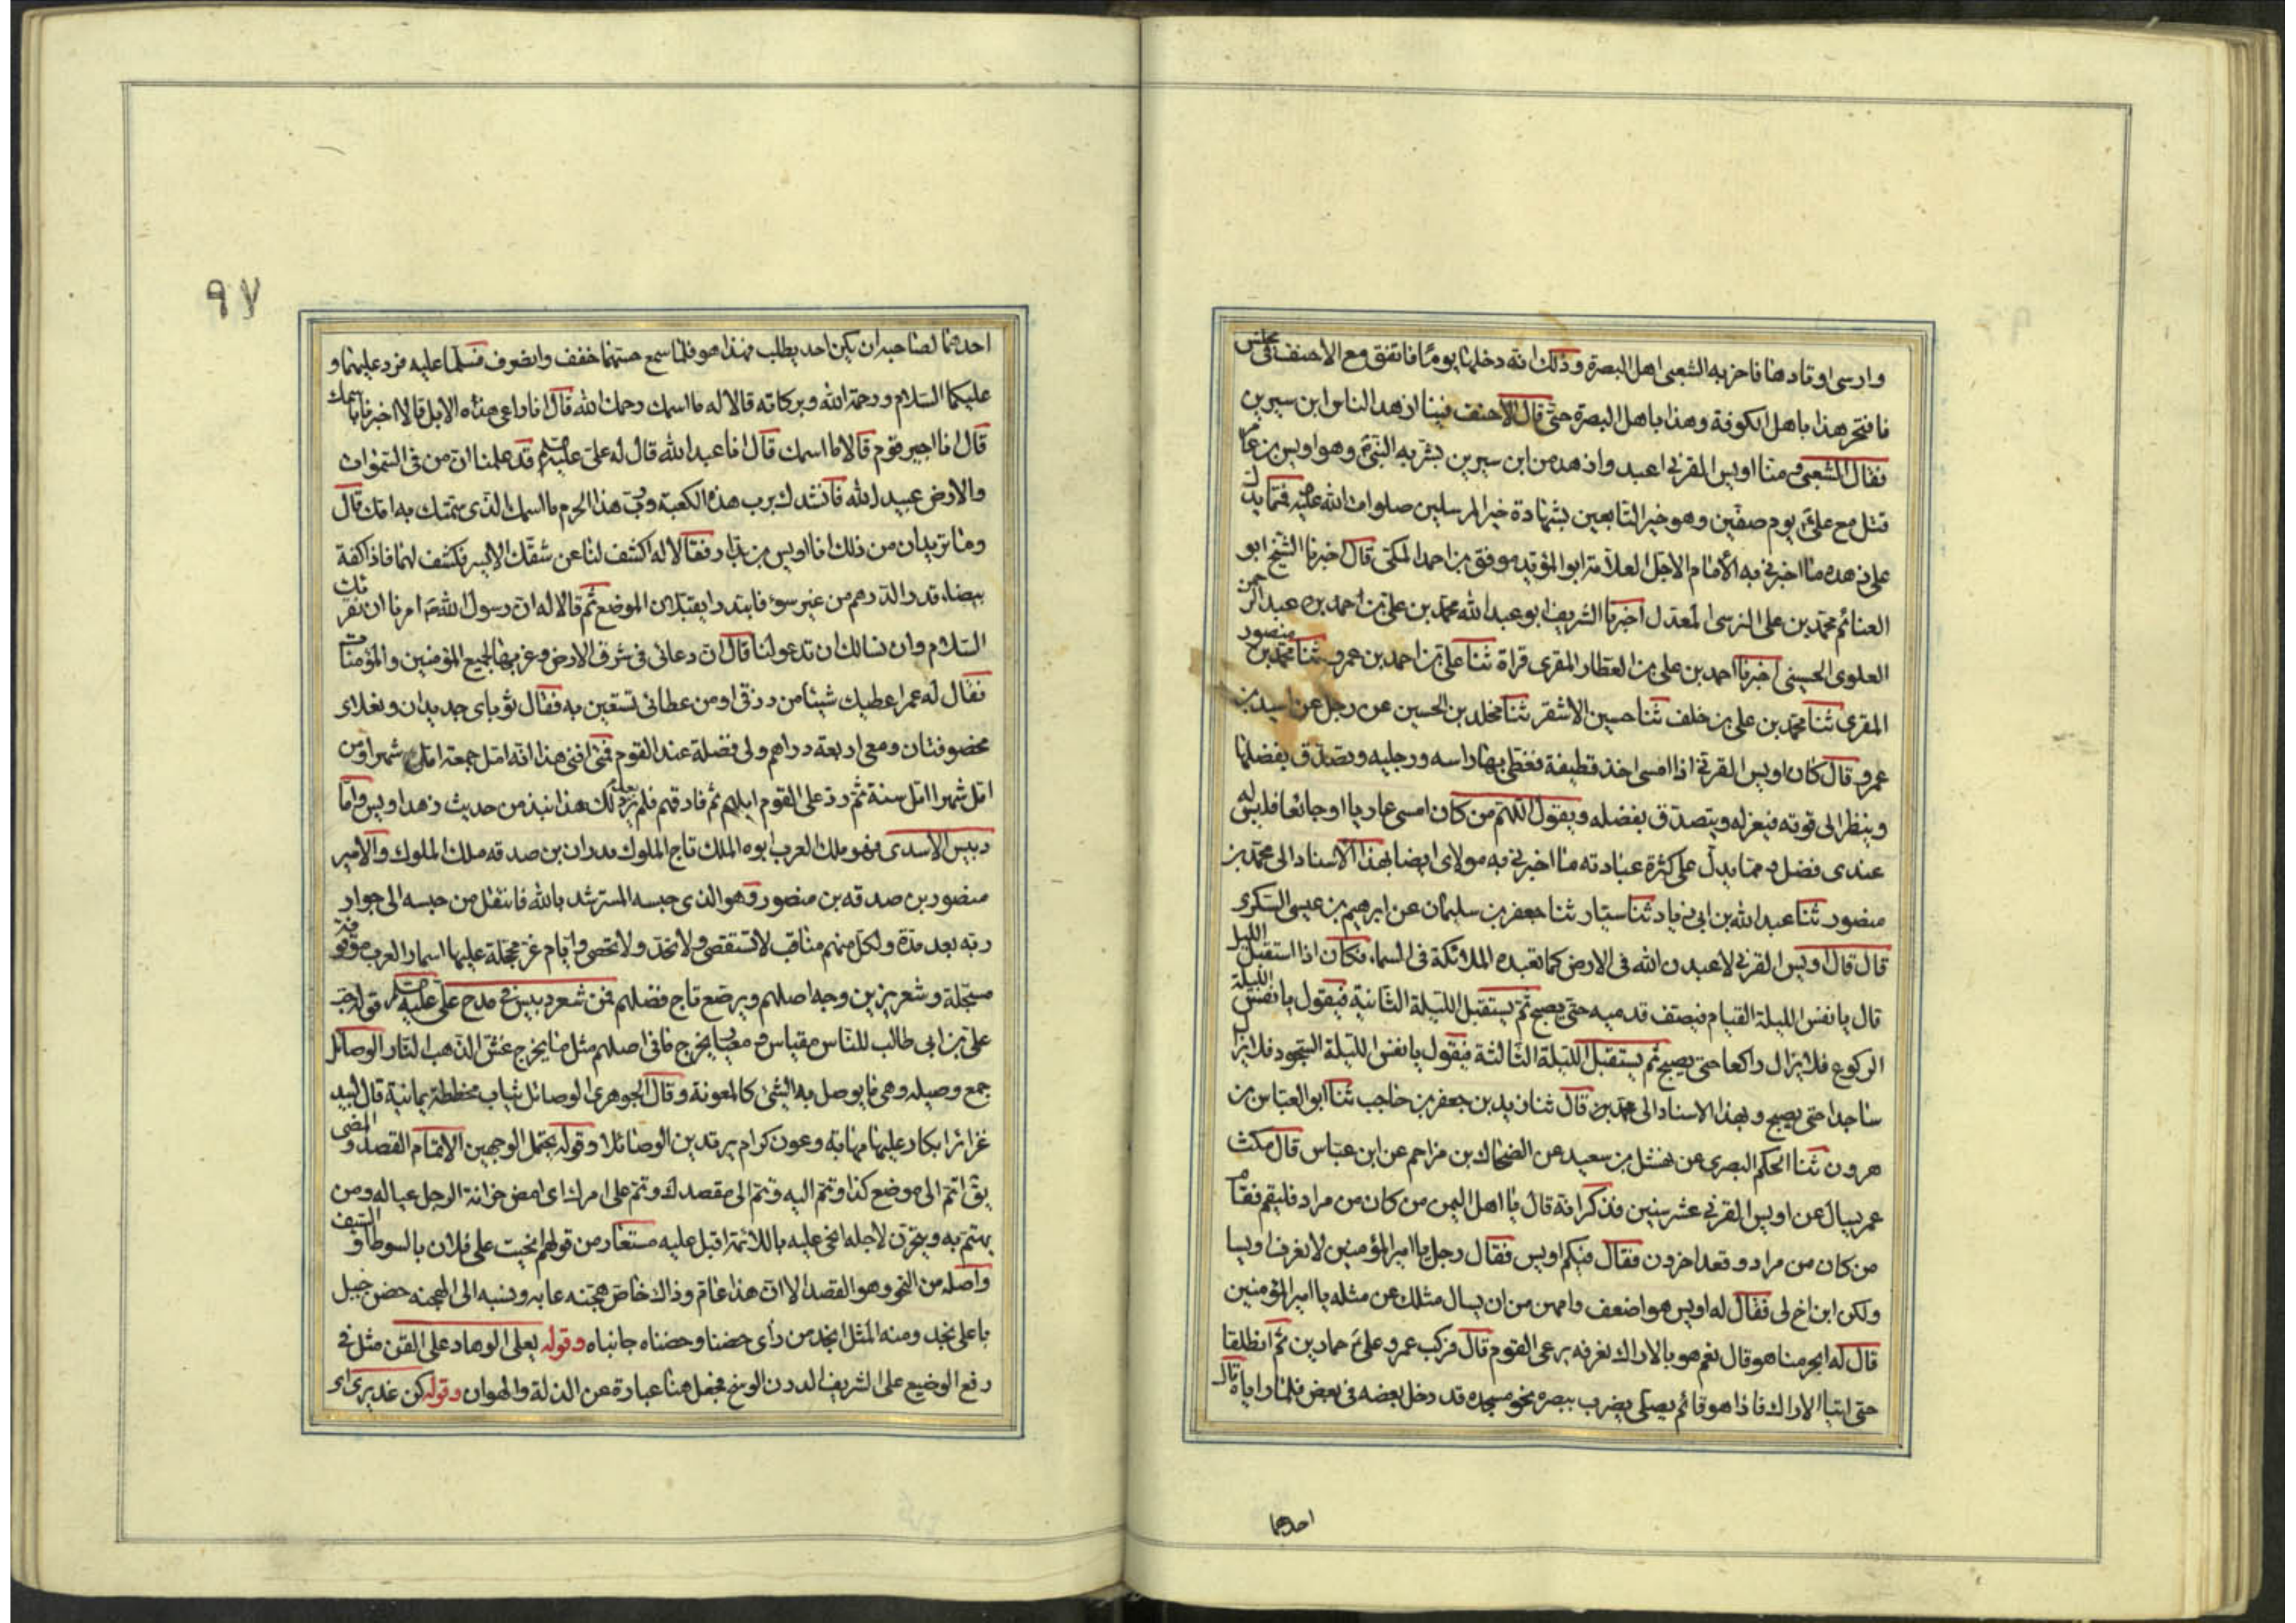 وارسى اوتادها فاخر به الشعبى اهل البصرة وذلك انه دخلها يوما فاتفق مع الاحنف فى مجلس
فافتخر هذا باهل الكوفة وهذا باهل البصرة حتى قال الاحنف فينا ازهد الناس ابن سيرين
فقال الشعبى ومنا اويس القرنى اعبد وازهد من ابن سيرين بشر به النبى وهو اويس بن عامر
قتل مع على يوم صفين وهو خير التابعين بشهادة خير المرسلين صلوات الله عليه فمما يدل
على زهده ما اخبرنى به الأمام الاجل العلامة ابو المؤيد موفق بن احمد المكى قال اخبرنا الشيخ ابو
الغنائم محمد بن على النرسى المعدل اخبرنا الشريف ابو عبد الله محمد بن على بن احمد بن عبد الرحمن
العلوى الحسينى اخبرنا احمد بن على بن العطار المقرى قراة ثنا على بن احمد بن عمرو ثنا محمد بن منصور
المقرى ثنا محمد بن على بن خلف ثنا حسين الاشقر ثنا مخلد بن الحسين عن رجل عن اسيد بن
عمرو قال كان اويس القرنى اذا امسى اخذ قطيفة فغطى بها راسه ورجليه وتصدق بفضلها
وينظر الى قوته فيعزله ويتصدق بفضله ويقول اللهم من كان امسى عاريا او جائعا فليس له
عندى فضل ومما يدل على كثرة عبادته ما اخبرنى به مولاى ايضا بهذا الاسناد الى محمد بن
منصور ثنا عبد الله بن ابى زياد ثنا سيار ثنا جعفر بن سليمان عن ابرهيم بن عيسى السكرى
قال قال اويس القرنى لاعبدن الله فى الارض كما تعبده الملائكة فى السماء فكان اذا استقبل الليل
قال يا نفس الليلة القيام فيصف قدميه حتى يصبح ثم يستقبل الليلة الثانية فيقول يا نفس الليلة
الركوع فلا يزال راكعا حتى يصبح ثم يستقبل الليلة الثالثة فيقول يا نفس الليلة السجود فلا يزال
ساجدا حتى يصبح وبهذا الاسناد الى محمد بن قال ثنا زيد بن جعفر بن حاجب ثنا ابو العباس بن
هرون ثنا الحكم البصرى عن نهشل بن سعيد عن الضحاك بن مزاحم عن ابن عباس قال مكث
عمر يسال عن اويس القرنى عشر سنين فذكر انه قال يا اهل اليمن من كان من مراد فليقم فقام
من كان من مراد وقعد اخرون فقال فيكم اويس فقال رجل يا امير المؤمنين لا نعرف اويسا
ولكن ابن اخ لى فقال له اويس هو اضعف وامهن من ان يسال مثلك عن مثله يا امير المؤمنين
قال له ابحرمنا هو قال نعم هو بالاراك نعرفه يرعى القوم قال فركب عمرو على حمارين ثم انطلقا
حتى اتيا الاراك فاذا هو قائم يصلى يضرب ببصره نحو مسجده قد دخل بعضه فى بعض فلما راياه قال
احدهما
٩٧
احدهما لصاحبه ان يكن احد يطلب فهذا هو فلما سمع حسهما خفف وانصرف فسلما عليه فرد عليهما و
عليكما السلام ورحمة الله وبركاته قالا له ما اسمك رحمك الله قال انا راعى هذه الابل قالا اخبرنا باسمك
قال انا اجير قوم قالا ما اسمك قال انا عبد الله قال له على عليه السلم قد علمنا ان من فى السموات
والارض عبيد لله فانشدك برب هذه الكعبة ورب هذا الحرم ما اسمك الذى سمتك به امك قال
وما تريدان من ذلك انا اويس بن بدار فقالا له اكشف لنا عن شقك الايسر فكشف لهما فاذا كفة
بيضاء قدر الدرهم من غير سوء فابتدرا يقبلان الموضع ثم قالا له ان رسول الله امرنا ان نقرئك
السلام وان نسالك ان تدعو لنا قال ان دعائى فى شرق الارض وغربها لجميع المؤمنين والمؤمنات
فقال له عمر اعطيك شيئا من رزقى او من عطائى تستعين به فقال ثوباى جديدان ونعلاى
مخصوفتان ومعى اربعة دراهم ولى فضلة عند القوم فمتى افنى هذا انه امل جمعة امل شهرا ومن
امل شهرا امل سنة ثم رد على القوم ابلهم ثم فارقهم فلم ير بعد ذلك هذا نبذ من حديث زهد اويس واما
دبيس الأسدى فهو ملك العرب ابوه الملك تاج الملوك بدران بن صدقه ملك الملوك والامير
منصور بن صدقه بن منصور وهو الذى حبسه المسترشد بالله فانتقل من حبسه الى جوار
ربه بعد مدة ولكل منهم مناقب لا تستقصى ولا تحد ولا تحصى وايام غر محجلة عليها اسمار العرب موقوفة
مسجلة وشعر يزين وجه اصلهم ويرصع تاج فضلهم فمن شعر دبيس فى مدح على عليه السلم قوله حب
على بن ابى طالب للناس مقياس ومعيار يخرج ما فى اصلهم مثل ما يخرج غش الذهب النار الوصائل
جمع وصيله وهى ما يوصل به الشئ كالمعونة وقال الجوهرى الوصائل ثياب مخططة يمانية قال لبيد
غرائر ابكار عليها مهابة وعون كرام يرتدين الوصائلا وقوله يحتمل الوجهين الاتمام القصد والمضى
يق اتم الى موضع كذا وتتم اليه وتتم الى مقصدك وتتم على امرك اى امض خزانة الرجل عياله ومن
يهتم به ويتحزن لاجله انحى عليه باللائمة اقبل عليه مستعار من قولهم انحيت على فلان بالسوط او السيف
واصله من النحو وهو القصد الا ان هذا عام وذاك خاص هجنه عابه ونسبه الى الهجنه حضن جبل
باعلى نجد ومنه المثل انجد من رأى حضنا وحضناه جانباه وقوله يعلى الوهاد على القنن مثل فى
رفع الوضيع على الشريف الدرن الوسخ فجعل هنا عبارة عن الذلة والهوان وقوله كن عذيرى اى